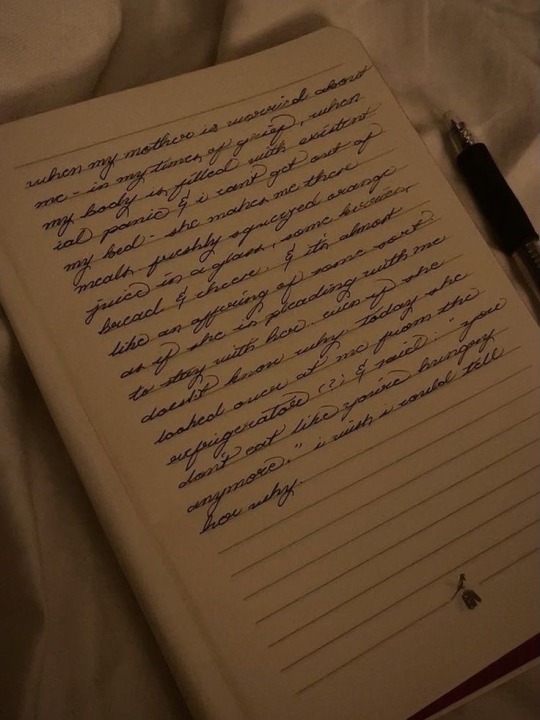 when my mother is worried about
me - in my times of grief, when
my body is filled with existent
ial panic & i cant get out of
my bed - she makes me these
meals. freshly squeezed orange
juice in a glass, some kiwies,
bread & cheese. & it's almost
like an offering of some sort?
as if she is pleading with me
to stay with her. even if she
doesn't know why. today she
looked over at me from the
refrigerator (?) & said: "you
don't eat like you're hungry
anymore." i wish i could tell
her why.